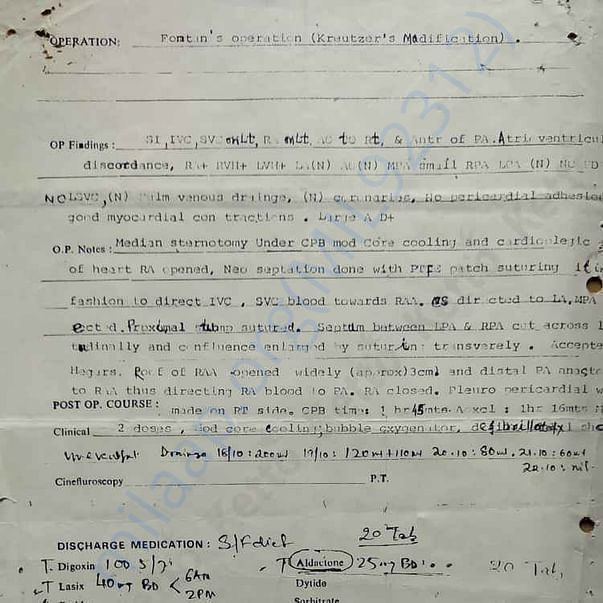 OPERATION: Fontan's operation (Kreutzer's Madification).
OP Findings: SI, IVC, SVC on Lt, RA on Lt, AO to Rt, & Antr of PA. Atrio ventricul
discordance, RA+ RVH+ LVH+ LA(N) AO(N) MPA small RPA LPA (N) NO
NO LSVC, (N) Pulm venous drainge, (N) coronaries, No pericardial adhesio
good myocardial con tractions. Large A D+
O.P. Notes: Median sternotomy Under CPB mod Core cooling and cardioplegic
of heart RA opened, Neo septation done with PTFE patch suturing it in
fashion to direct IVC, SVC blood towards RAA. CS directed to LA, MPA
ected. Proximal stump sutured. Septum between LPA & RPA cut across l
tudinally and confluence enlarged by suturin: transversely. Accepte
Hegars. Roof of RAA opened widely (approx)3cm) and distal PA anasto
to RAA thus directing RA blood to PA. RA closed. Pleuro pericardial w
POST OP. COURSE: made on RT side. CPB time: 1 hr 45mts. A xcl: 1hr 16mts
Clinical 2 doses, Mod core cooling, bubble oxygenator, defibrillated
Uneventful Drainage 18/10: 200ml 19/10: 120ml+110ml 20.10: 80ml. 21.10: 60ml
22.10: nil
Cinefluroscopy P.T.
DISCHARGE MEDICATION: S/F diet 20 Tab
T. Digoxin 100 5/7 T Aldactone 25mg BD 20 Tab,
T Lasix 40mg BD < 6AM
2PM Dytide
Sorbitrate